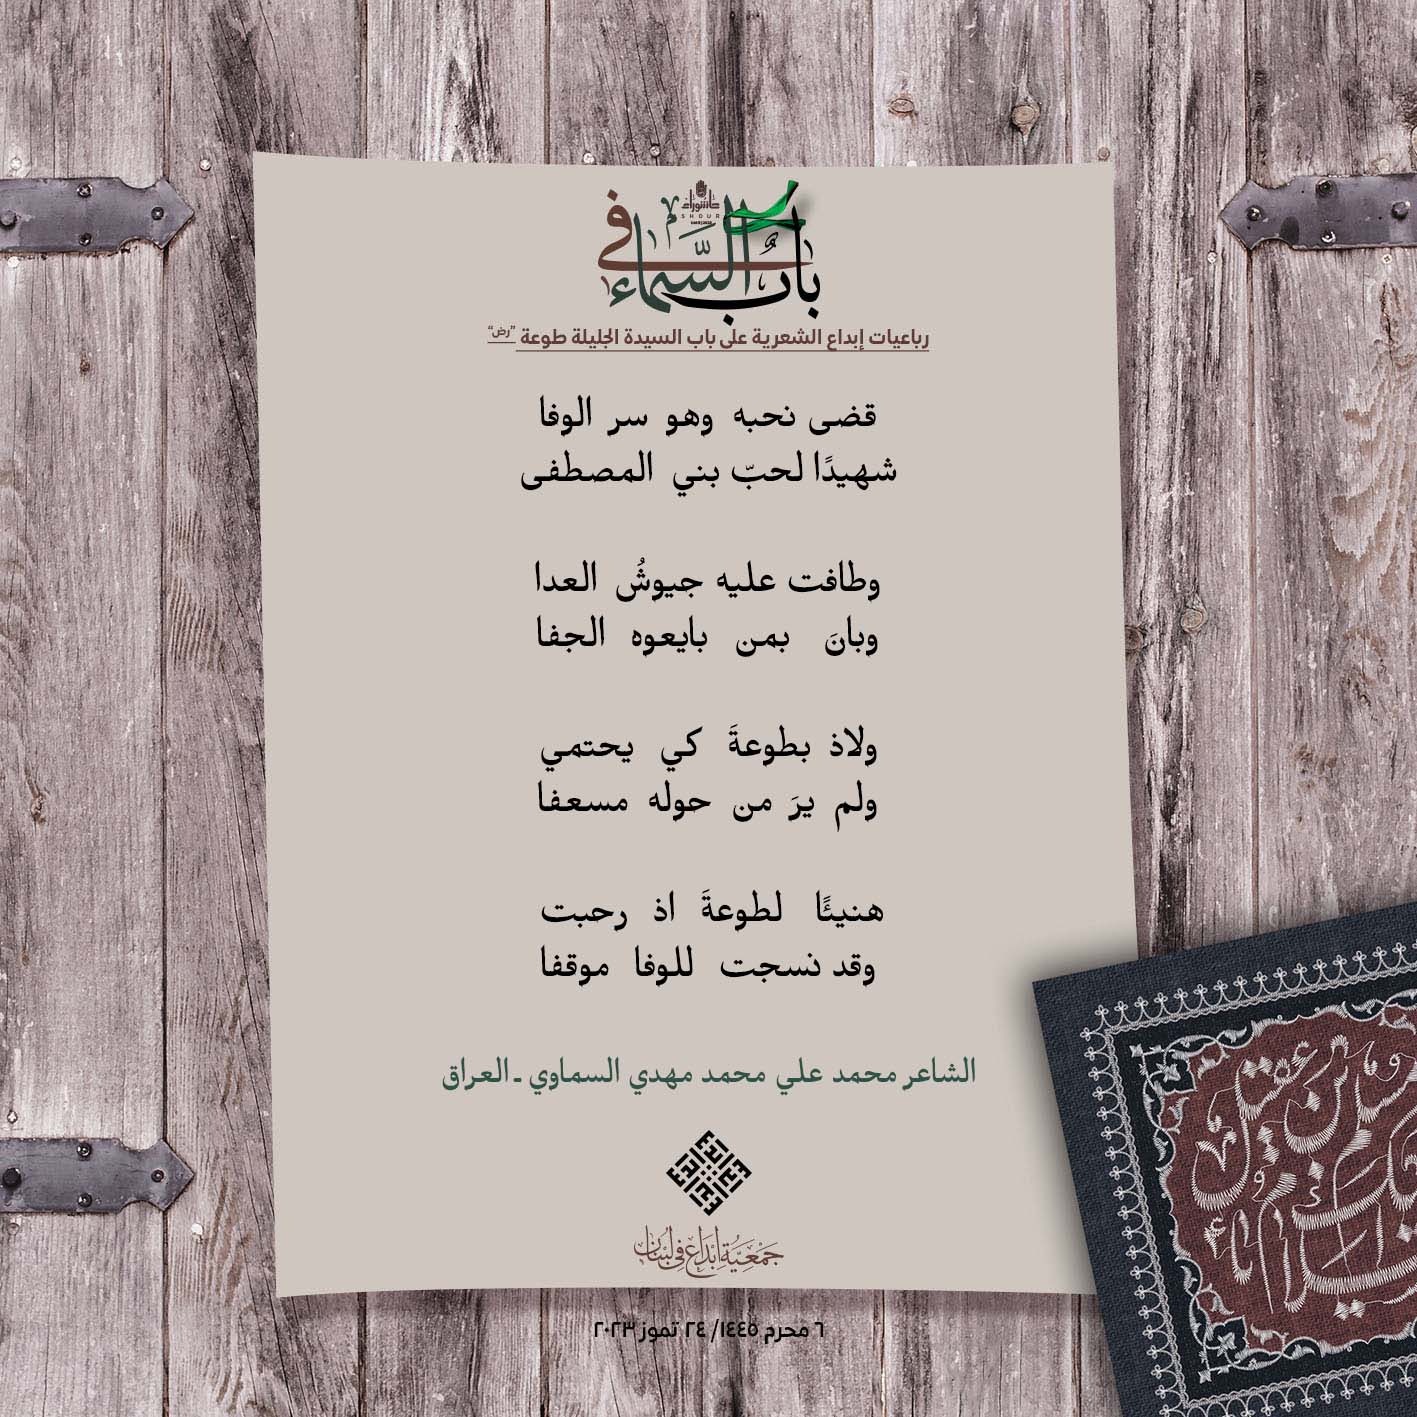 في باب السَّماء
عاشوراء
ASHOURA
رباعيات إبداع الشعرية على باب السيدة الجليلة طوعة "رض"
قضى نحبه وهو سر الوفا
شهيدًا لحبّ بني المصطفى
وطافت عليه جيوشُ العدا
وبانَ بمن بايعوه الجفا
ولاذ بطوعةَ كي يحتمي
ولم يرَ من حوله مسعفا
هنيئًا لطوعةَ اذ رحبت
وقد نسجت للوفا موقفا
الشاعر محمد علي محمد مهدي السماوي ـ العراق
جمعية إبداع في لبنان
٦ محرم ١٤٤٥/ ٢٤ تموز ٢٠٢٣
السلام عليك يا مسلم بن عقيل